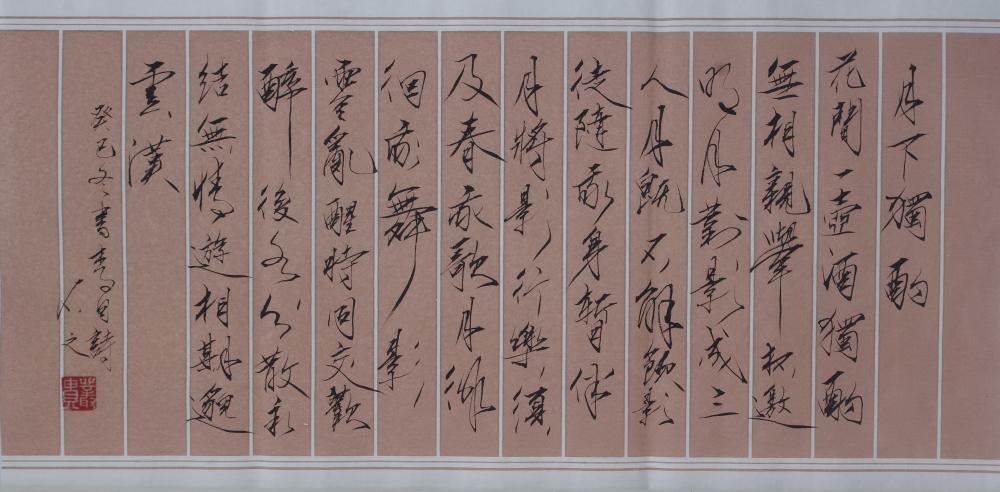 月下獨酌
花間一壺酒獨酌
無相親舉杯邀
明月對影成三
人月既不解飲影
徒隨我身暫伴
月將影行樂須
及春我歌月徘
徊我舞影
零亂醒時同交歡
醉後各分散永
結無情遊相期邈
雲漢
癸巳冬書李白詩
之